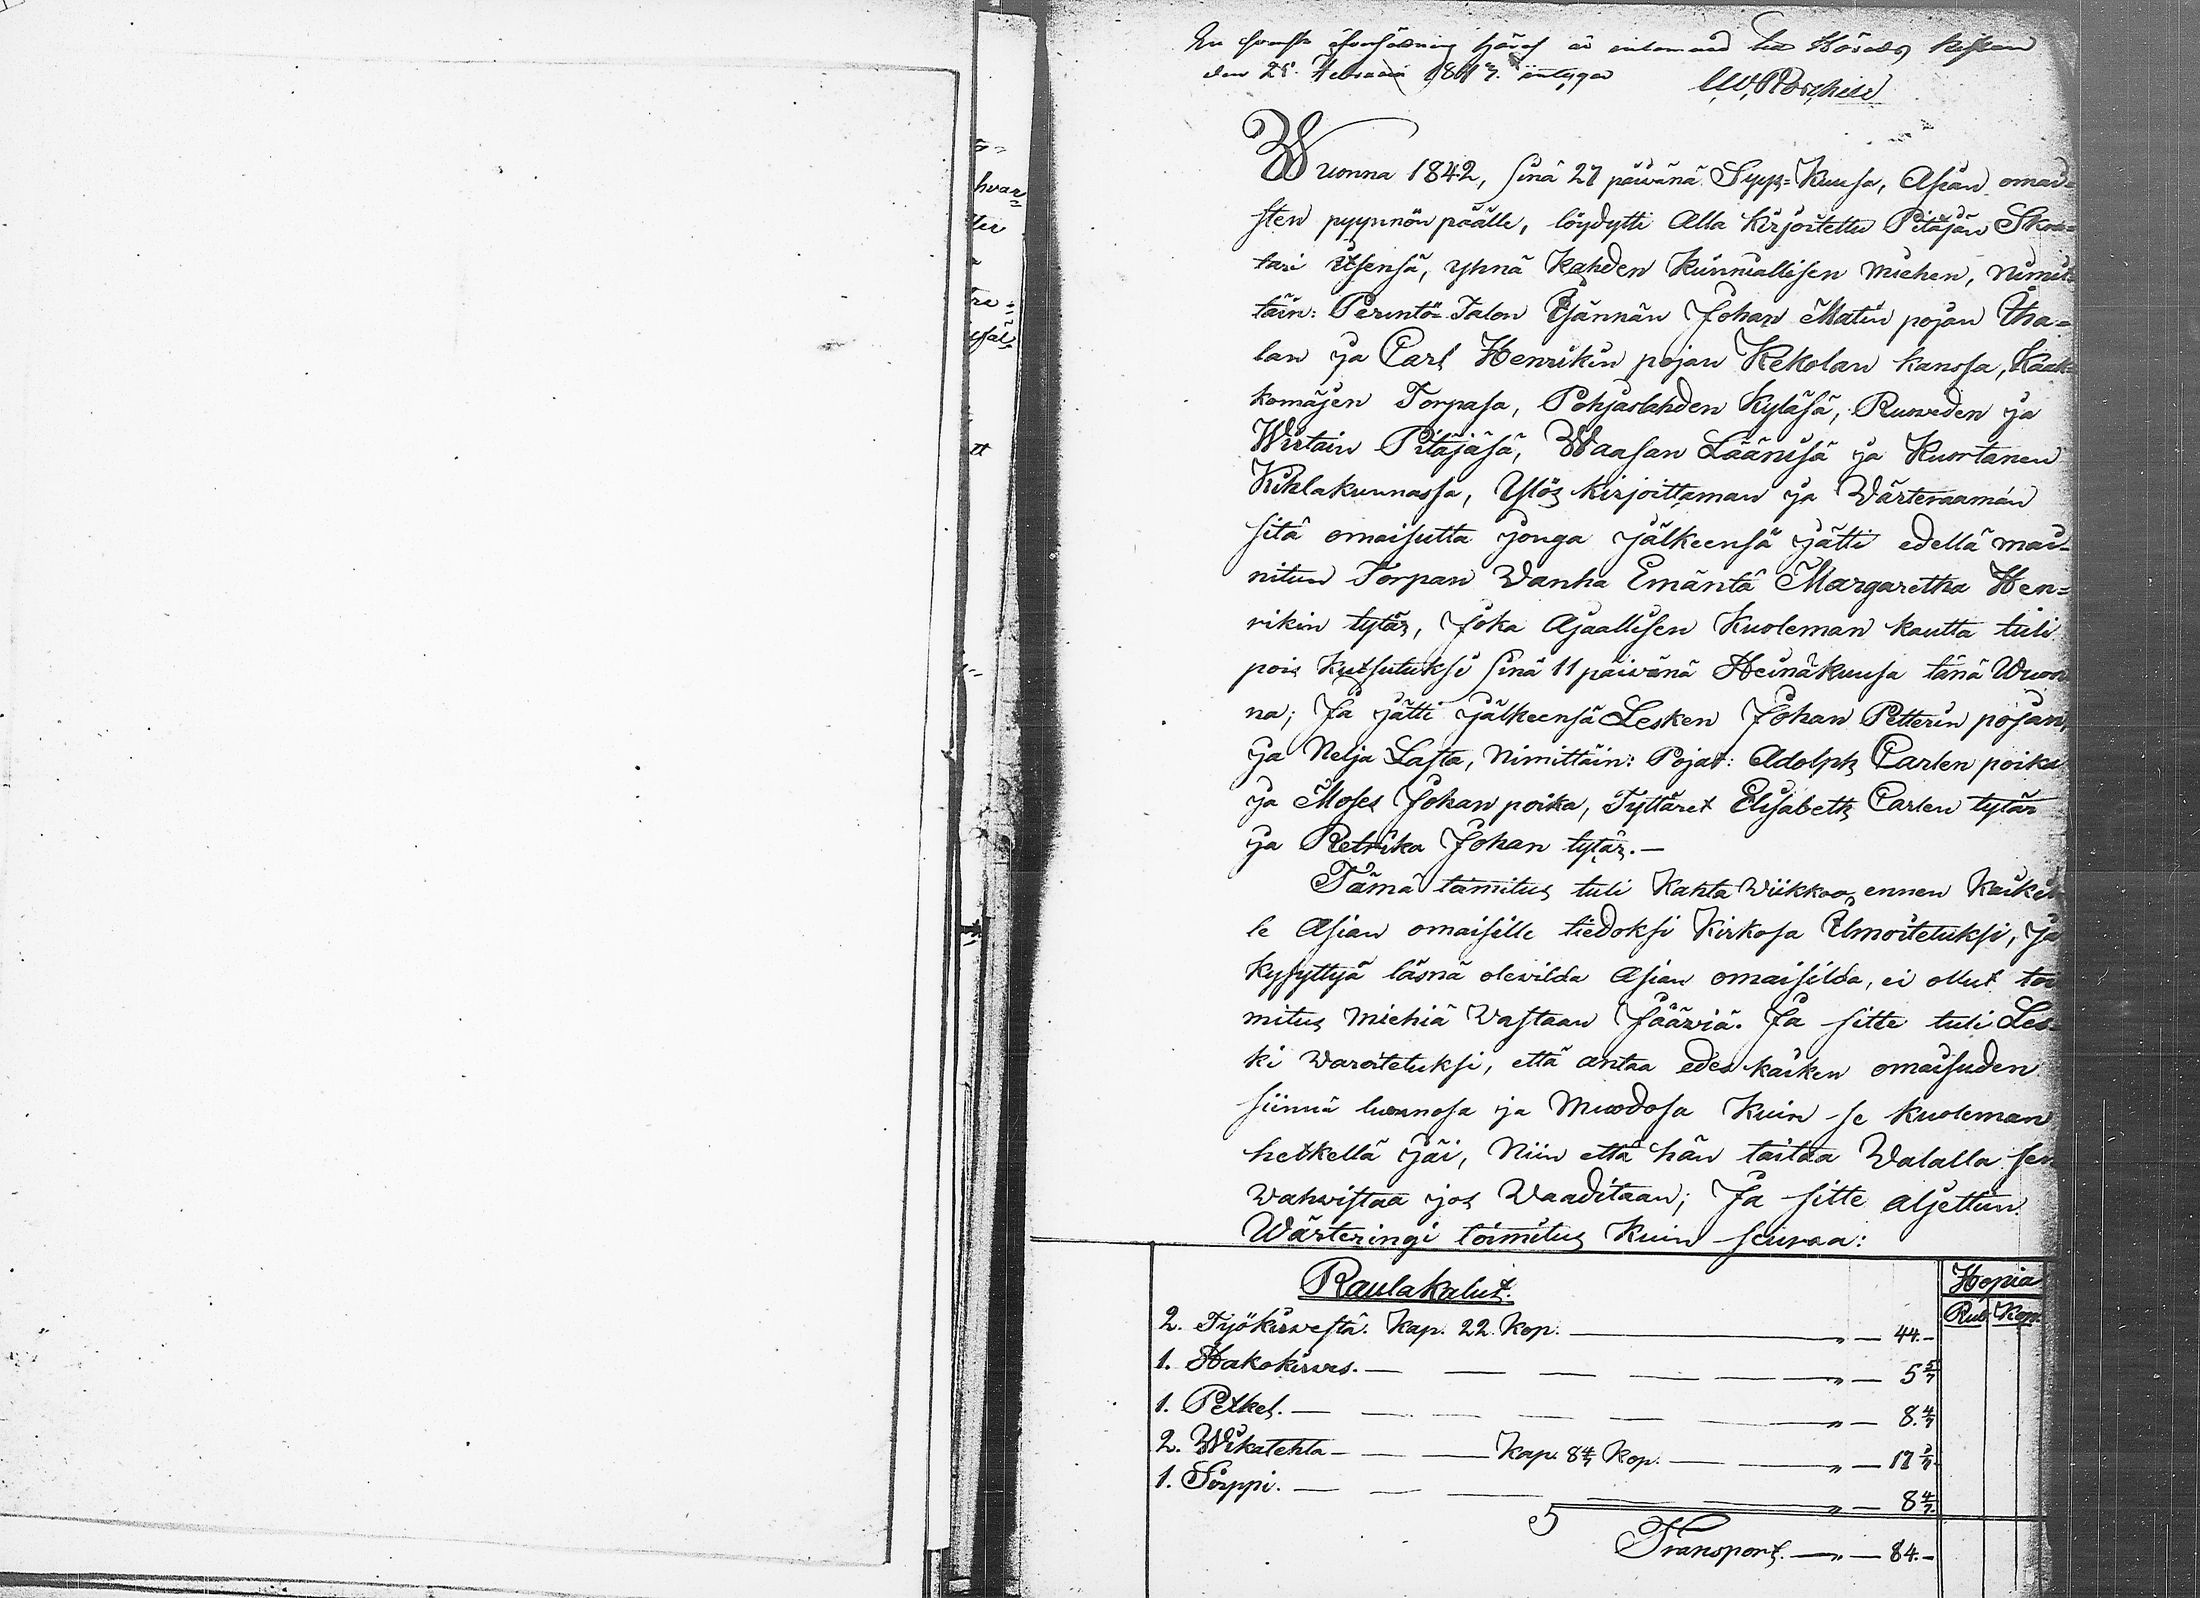 hvar=
tt
den 25. 1843. intygar
Wuonna 1842, sinä 27 päivänä Syys=Kuusa, Asian omai=
sten pyynnön päälle, löydytti Alla kirjoitettu Pitäjän Skou=
tari itsensä, ynnä Kahden kunniallisen miehen, nimit=
täin: Perintö-Talon Isännän Johan Matin pojan Uha=
lan ja Carl Henrikin pojan Kekolan kanssa, Kaak=
komäjen Torpasa, Pohjaslahden Kyläsä, Ruoweden ja
Wirtain Pitäjäsä, Waasan Läänisä ja Kuortanen
Kihlakunnassa, Ylös kirjoittaman ja Wärteraaman
sitä omaisutta jonga jälkeensä jätti edellä mai=
nitun Torpan Wanha Emäntä Margaretha Hen=
rikin tytär, joka Ajaallisen Kuoleman kautta tuli
pois Kutsutuksi sinä 11 päivänä Heinäkuusa tänä Wuon
na; Ja jätti jälkeensä Lesken Johan Petterin pojan,
ja Nelja Lasta, Nimittäin: Pojat: Adolph Carlen poika
ja Moses Johan poika, Tyttäret Elisabeth Carlen tytär
ja Retrika Johan tytär.—
Tämä toimitus tuli Kahta Wiikkoo ennen Kaikil
le Asian omaisille tiedoksi Kirkosa Ilmoitetuksi, Ja
kysyttyä läsnä olewilda Asian omaisilda, ei ollut toi
mitus miehiä Wastaan Jääwiä. Ja sitte tuli Les=
ki Waroitetuksi, että antaa edes kaiken omaisuden
siinnä luonnosa ja Muodosa Kuin se kuoleman
hetkellä jäi, Niin että hän taitaa Walalla sen
Wahwistaa jos Waaditaan; Ja sitte aljettiin
Wärteringi toimitus Kuin seuraa:
Raulakalut. Hopia
Rub Kop.
2. Työkirwestä. Kap. 22 Kop. — „ — 44.-
1. Hakokirwes. — „ — 5 5/7
1. Petkel. — „ — 8. 4/7
2. Wikatehta — Kap. 8 4/7 Kop. — „ — 17 1/7
1. Sirppi. — „ — 8 4/7
Transport. — „ — 84.-